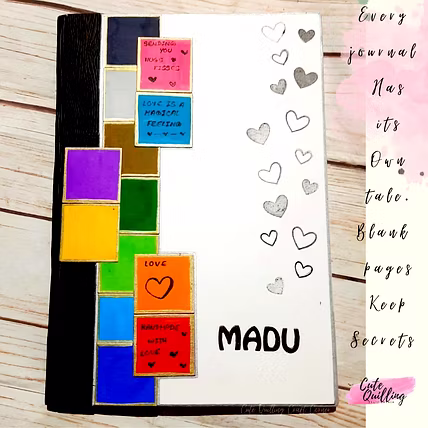 SENDING
YOU
HUGS &
KISSES
LOVE IS A
MAGICAL
FEELING
LOVE
HANDMADE
WITH
LOVE
MADU
Cute Quilling Craft Corner
Every
journal
Has
its
Own
tale.
Blank
pages
Keep
Secrets
Cute
Quilling